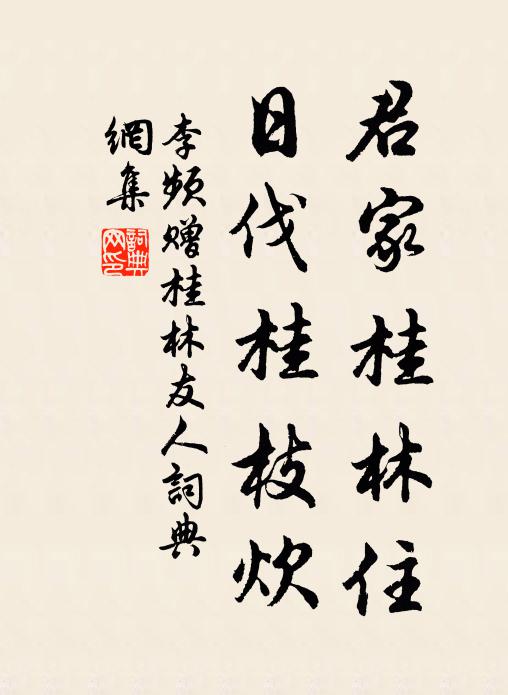 君家桂林住
日伐桂枝炊
李频赠桂林友人詞典
網集
詞典
网印